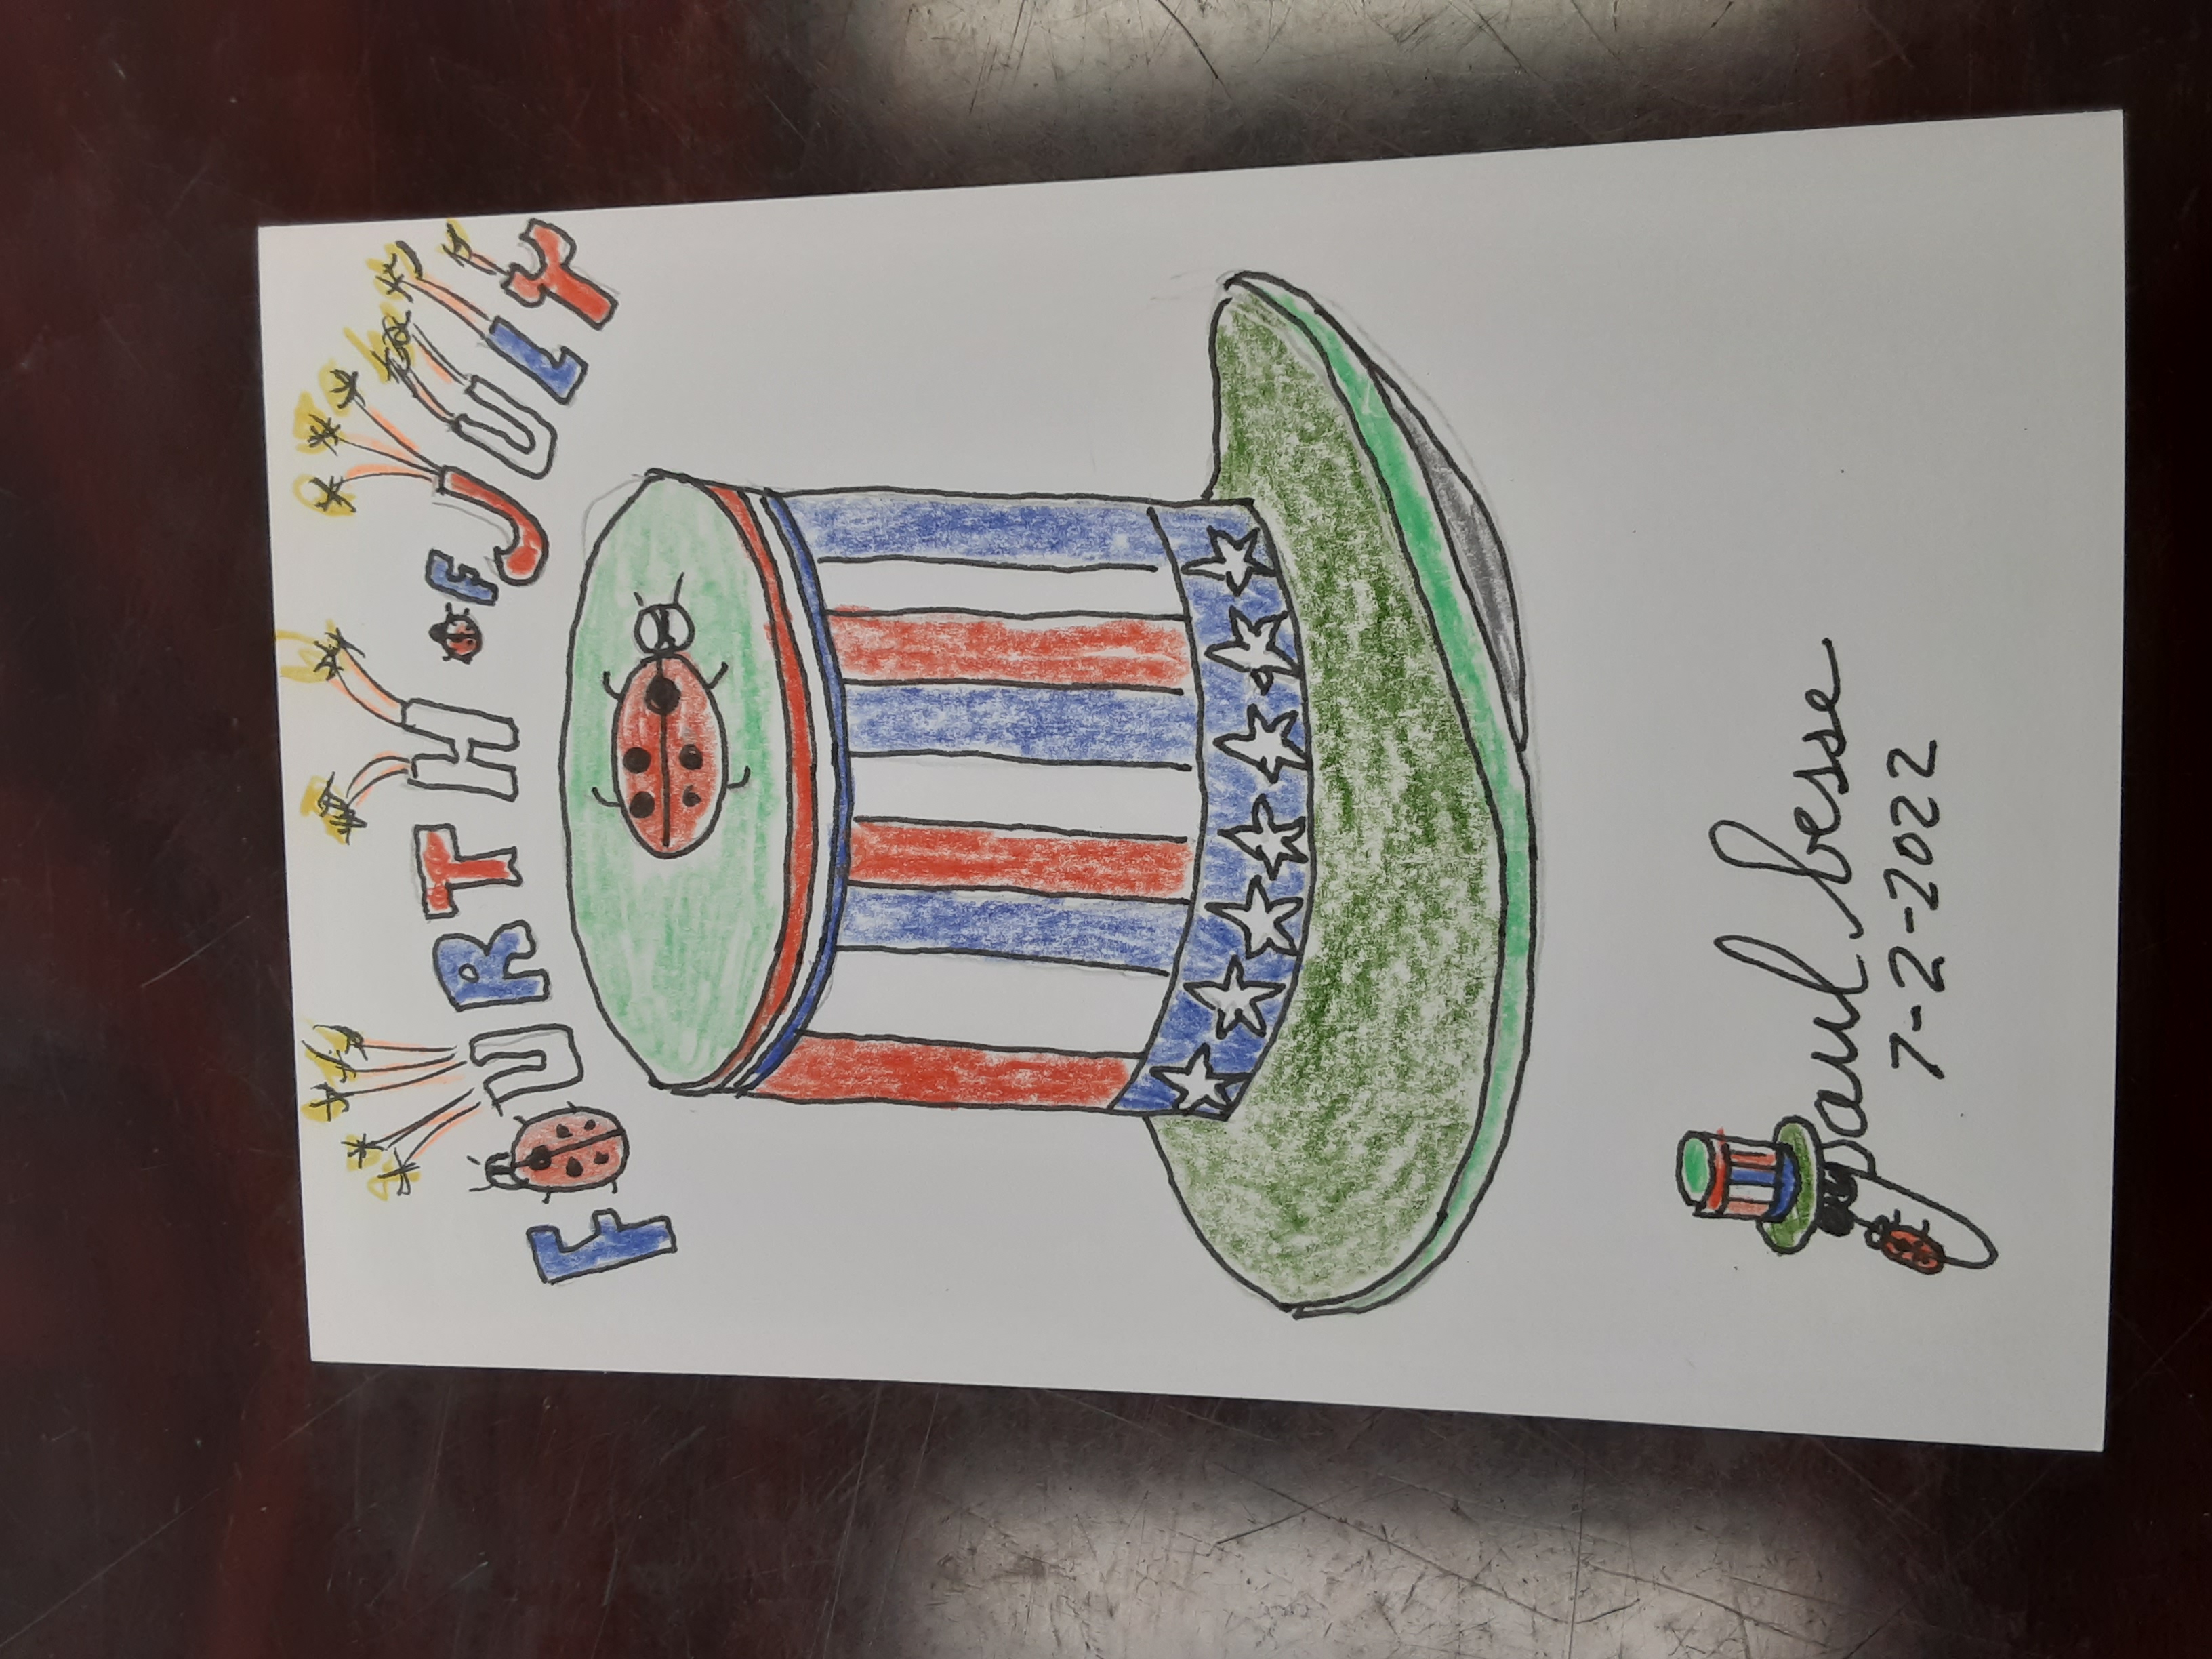 FOURTH OF JULY
paul besse
7-2-2022